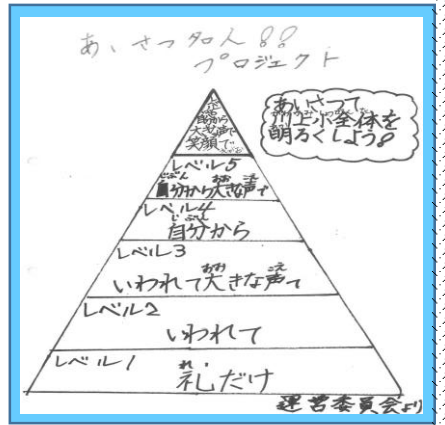 あいさつ名人!!
プロジェクト
あいさつで
川上小全体を
明るくしよう!
自分から
大きな声で
笑顔で
レベル5
自分から大きな声で
レベル4
自分から
レベル3
いわれて大きな声で
レベル2
いわれて
レベル1
礼だけ
運営委員会より